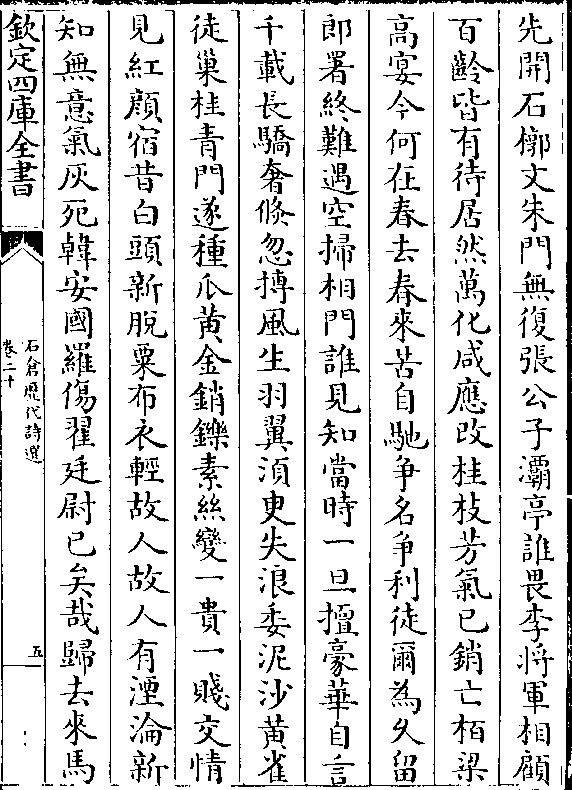 先開石槨文朱門無復張公子灞亭誰畏李將軍相顧
百齡皆有待居然萬化咸應改桂枝芳氣已銷亡栢梁
高宴今何在春去春來苦自馳争名争利徒爾為久留
郎署終難遇空掃相門誰見知當時一旦擅豪華自言
千載長驕奢倐忽搏風生羽翼湏臾失浪委泥沙黄雀
徒巢桂青門遂種瓜黄金銷鑠素絲變一貴一賤交情
見紅顔宿昔白頭新脱粟布衣輕故人故人有湮淪新
知無意氣灰死韓安國羅傷翟廷尉已矣哉歸去來馬
欽定四庫全書
石倉歴代詩選
卷二十
五